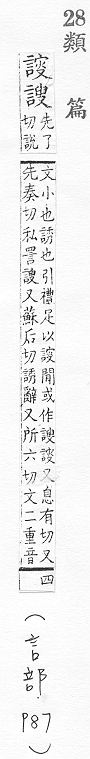 28
類篇
謏謏
先了
切說
文小也誘也引禮足以謏聞或作謏謏又息有切又
先奏切私詈謏又蘇后切誘辭又所六切文二重音四
(言部.987)